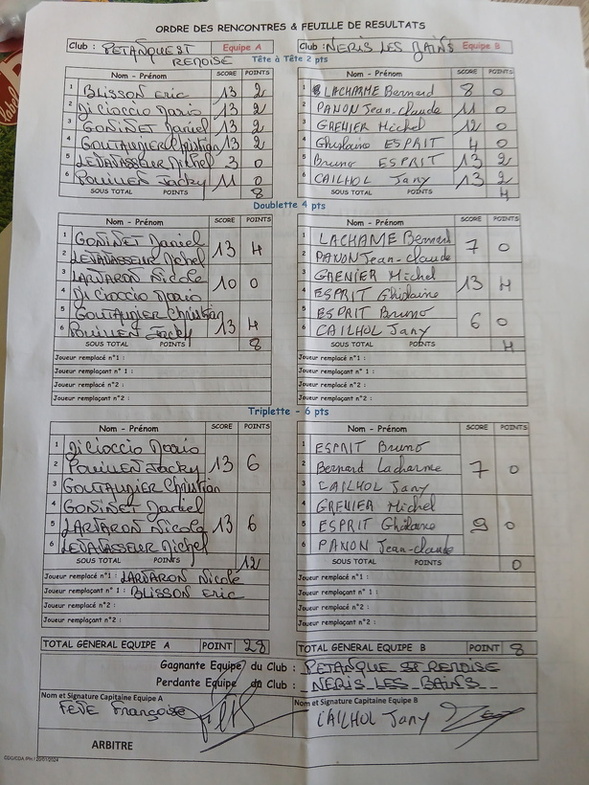 ORDRE DES RENCONTRES & FEUILLE DE RESULTATS
Club : PETANQUE ST RENOISE Equipe A Club : NERIS LES BAINS Equipe B
Tête à Tête 2 pts
Nom - Prénom SCORE POINTS Nom - Prénom SCORE POINTS
1 BLISSON Eric 13 2 1 LACHARME Bernard 8 0
2 DiCioccio Dario 13 2 2 PANON Jean-claude 11 0
3 GONINET Daniel 13 2 3 GRENIER Michel 12 0
4 GOUTAUDIER Christian 13 2 4 Ghislaine ESPRIT 4 0
5 LEVAVASSEUR Michel 3 0 5 Bruno ESPRIT 13 2
6 POUILLEN Jacky 11 0 6 CAILHOL Jany 13 2
SOUS TOTAL POINTS 8 SOUS TOTAL POINTS 4
Doublette 4 pts
Nom - Prénom SCORE POINTS Nom - Prénom SCORE POINTS
1 GONINET Daniel 13 4 1 LACHAME Bernard 7 0
2 LEVAVASSEUR Michel 2 PANON Jean-claude
3 LARVARON Nicole 10 0 3 GRENIER Michel 13 4
4 Di Cioccio Dario 4 ESPRIT Ghislaine
5 GOUTAUDIER Christian 13 4 5 ESPRIT Bruno 6 0
6 POUILLEN Jacky 6 CAILHOL Jany
SOUS TOTAL POINTS 8 SOUS TOTAL POINTS 4
Joueur remplacé n°1 : Joueur remplacé n°1 :
Joueur remplaçant n° 1 : Joueur remplaçant n° 1 :
Joueur remplacé n°2 : Joueur remplacé n°2 :
Joueur remplaçant n°2 : Joueur remplaçant n°2 :
Triplette - 6 pts
Nom - Prénom SCORE POINTS Nom - Prénom SCORE POINTS
1 DiCioccio Dario 1 ESPRIT Bruno
2 POUILLEN Jacky 13 6 2 Bernard Lacharme 7 0
3 GOUTAUDIER Christian 3 CAILHOL Jany
4 GONINET Daniel 4 GRENIER Michel
5 LARVARON Nicole 13 6 5 ESPRIT Ghislaine 9 0
6 LEVAVASSEUR Michel 6 PANON Jean-claude
SOUS TOTAL POINTS 12 SOUS TOTAL POINTS 0
Joueur remplacé n°1 : LARVARON Nicole Joueur remplacé n°1 :
Joueur remplaçant n° 1 : BLISSON Eric Joueur remplaçant n° 1 :
Joueur remplacé n°2 : Joueur remplacé n°2 :
Joueur remplaçant n°2 : Joueur remplaçant n°2 :
TOTAL GENERAL EQUIPE A POINT 28 TOTAL GENERAL EQUIPE B POINT 8
Gagnante Equipe du Club : PETANQUE ST RENOISE
Perdante Equipe du Club : NERIS LES BAINS
Nom et Signature Capitaine Equipe A Nom et Signature Capitaine Equipe B
FEVE Françoise CAILHOL Jany
ARBITRE